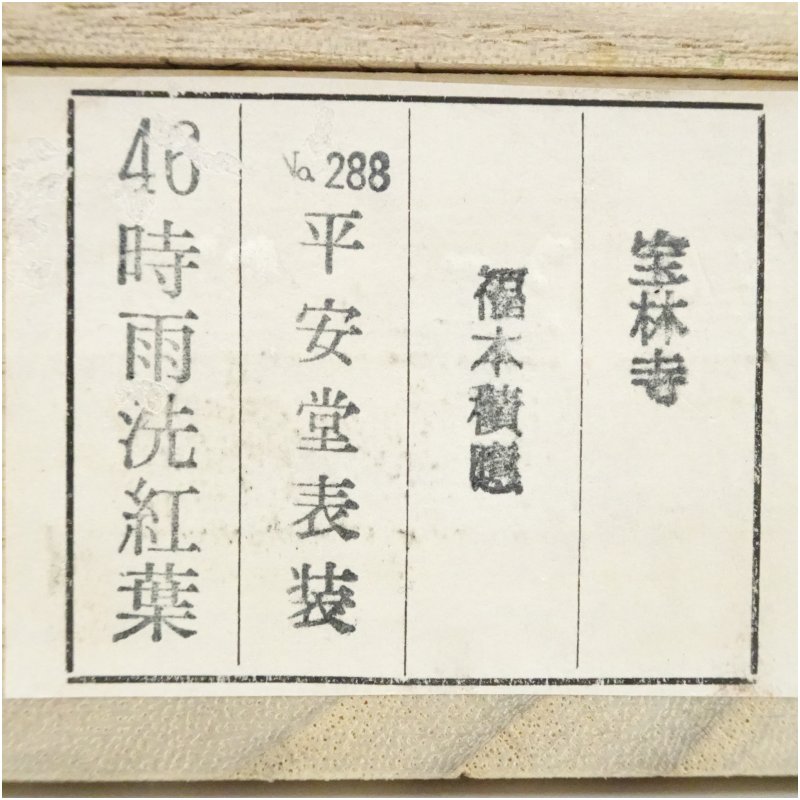 宝林寺
福本積應
No.288
平安堂表装
46
時雨洗紅葉